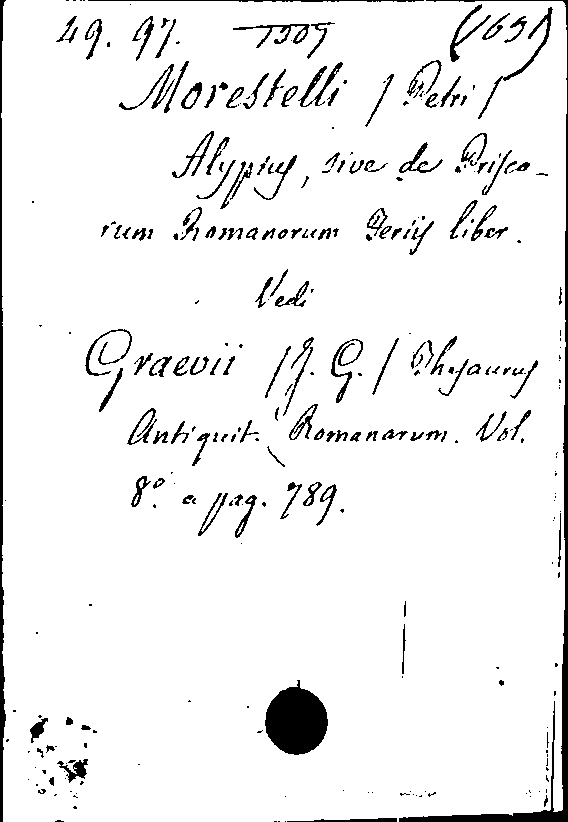 49. 97.
Morestelli / Petri /
Alypius, sive de Prisco-
rum Romanorum Feriis liber.
Vedi
Graevii / J. G. / Thesaurus
Antiquit. Romanarum. Vol.
8º a pag. 789.